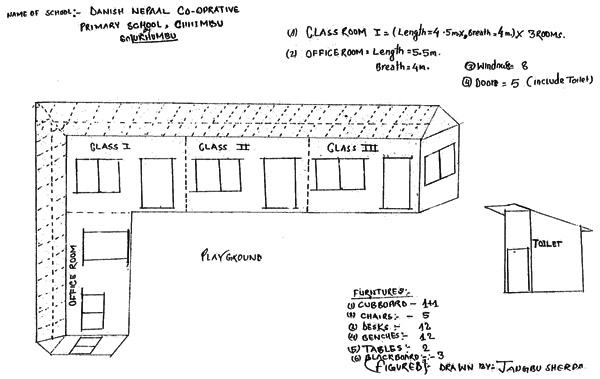 NAME OF SCHOOL:- DANISH NEPAL CO-OPRATIVE
PRIMARY SCHOOL, CHHIMBU
(1) CLASS ROOM I = (Length = 4.5m x Breath = 4m) x 3 ROOMS.
(2) OFFICE ROOM = Length = 5.5m.
Breath = 4m.
③ Windows = 8
④ Doors = 5 (include Toilet)
CLASS I
CLASS II
CLASS III
OFFICE ROOM
PLAYGROUND
TOILET
FURNITURES:-
(1) CUBBOARD - 1+1
(2) CHAIRS:- - 5
(3) DESKS :- 12
(4) BENCHES:- 12
(5) TABLES - 2
(6) BLACKBOARD:- 3
(FIGURE B) DRAWN BY:- JANGBU SHERPA